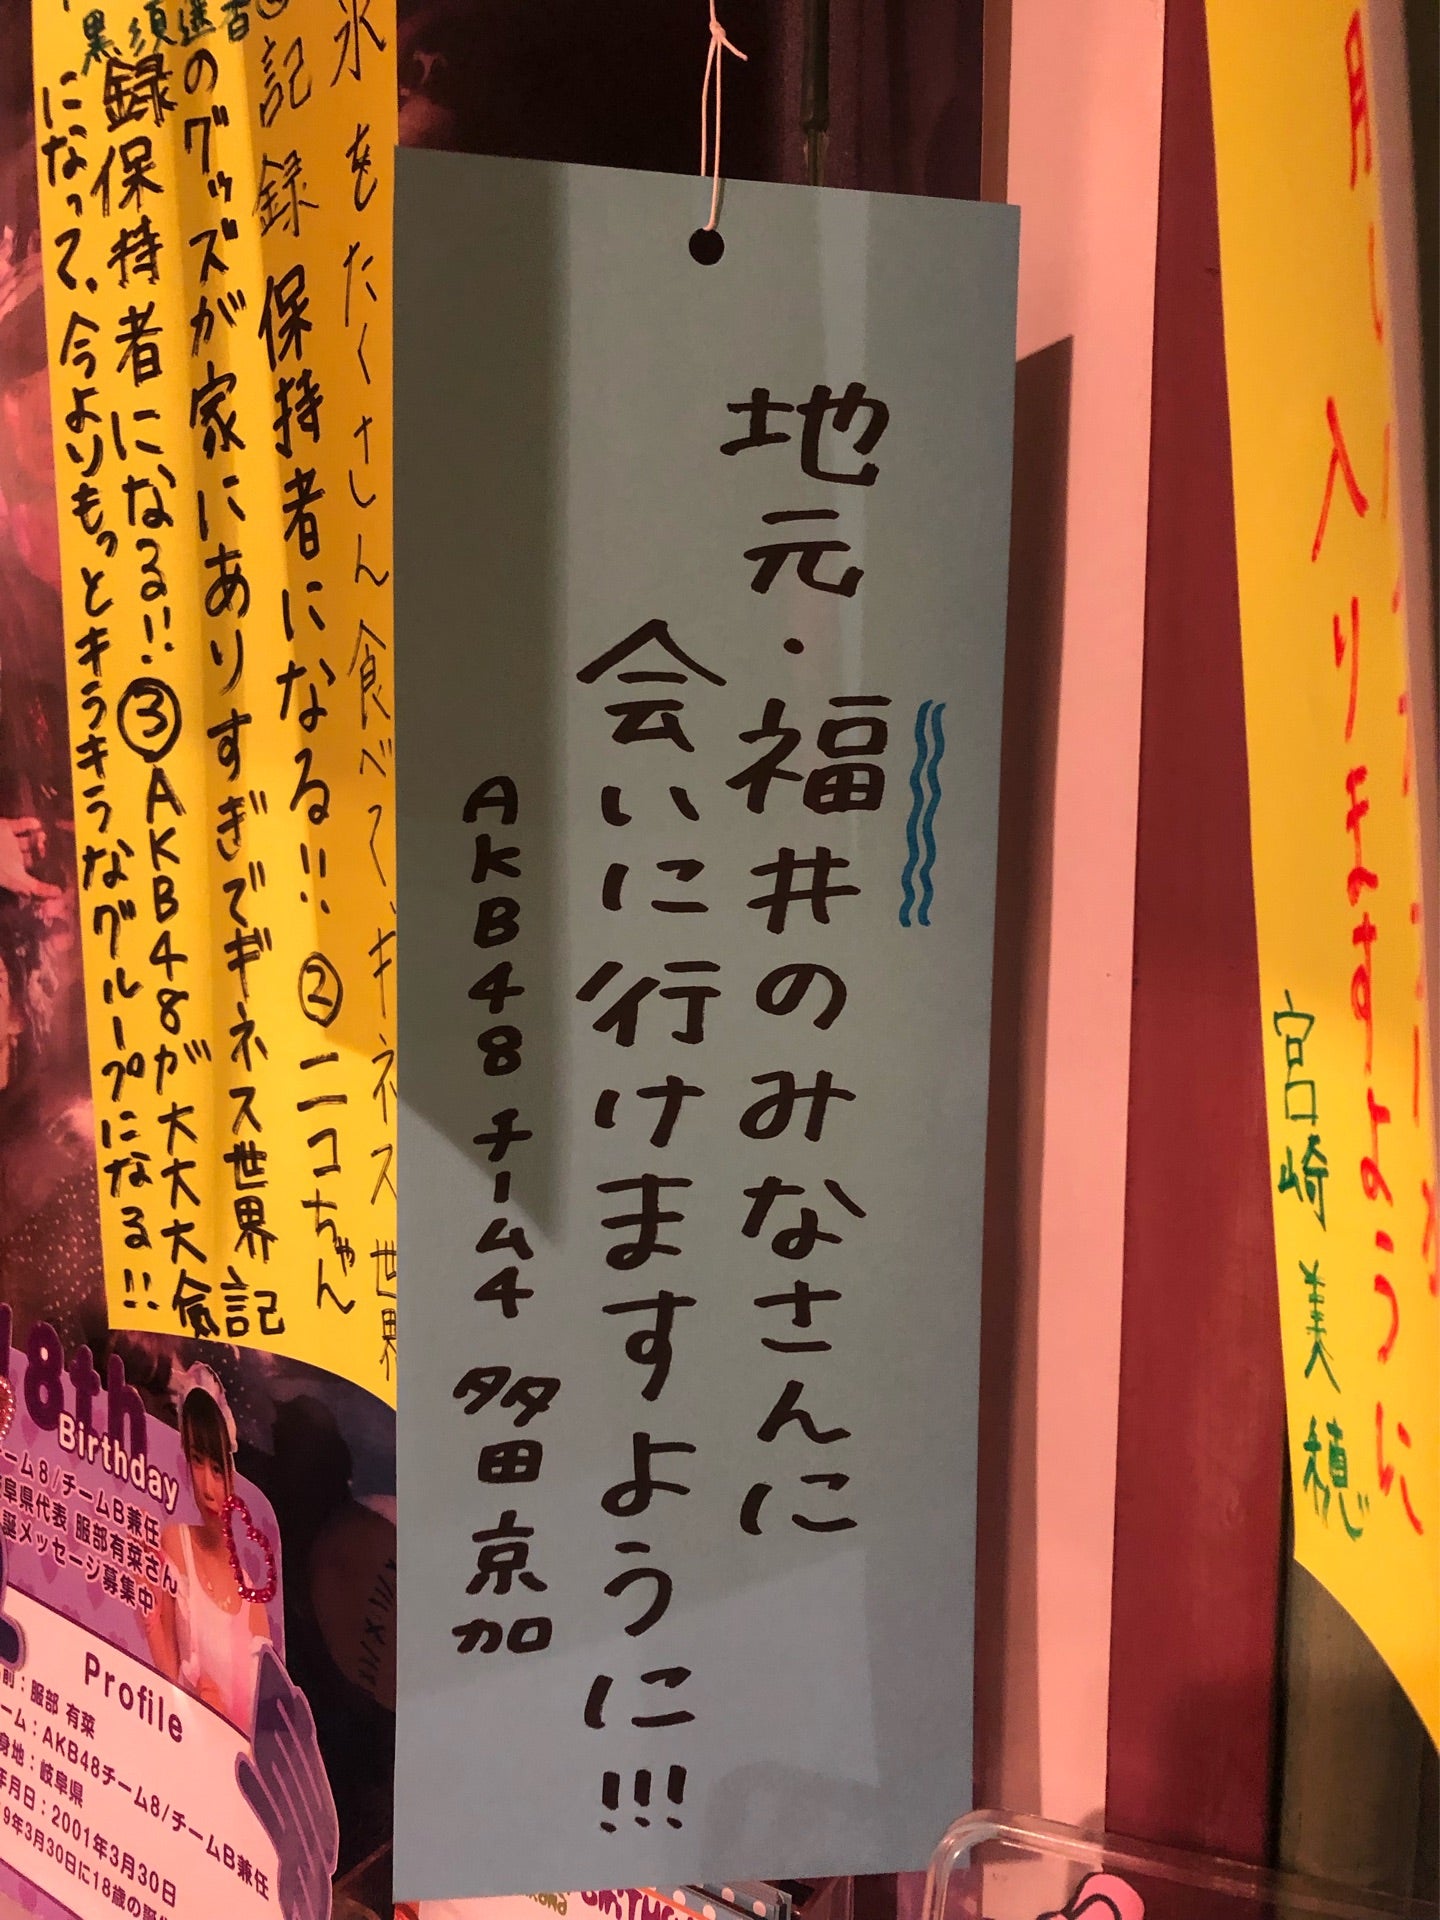 地元・福井のみなさんに
会いに行けますように!!!
AKB48チーム4 多田京加
氷をたくさん食べて、ギネス世界
記録保持者になる!! ②ニコちゃん
のグッズが家にありすぎでギネス世界記
録保持者になる!! ③AKB48が大大大人気
になって、今よりもっとキラキラなグループになる!!
入りますように
宮崎美穂
18th
Birthday
チーム8/チームB兼任
岐阜県代表 服部有菜さん
生誕メッセージ募集中
Profile
名前:服部 有菜
チーム:AKB48チーム8/チームB兼任
出身地:岐阜県
生年月日:2001年3月30日